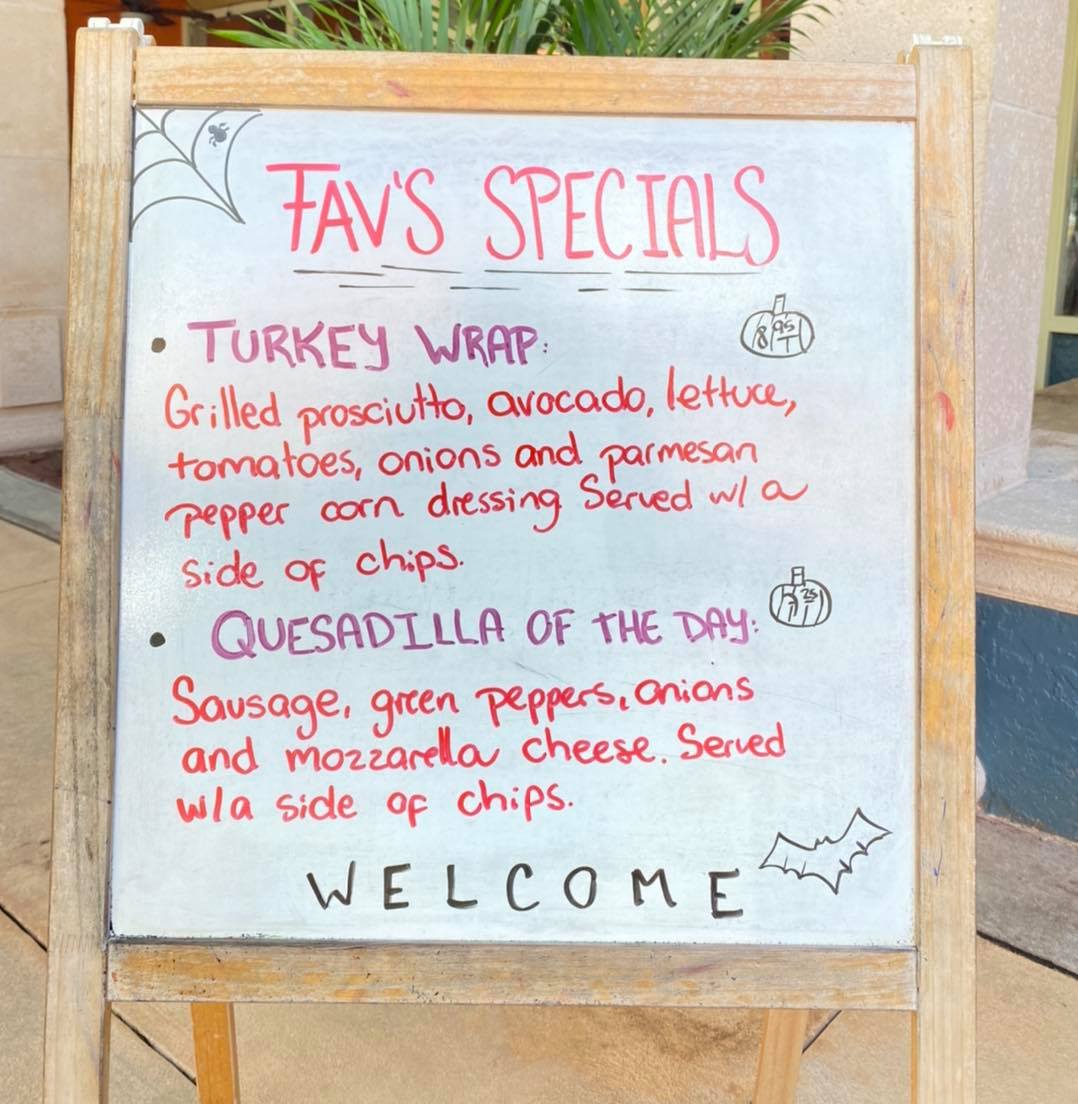 FAV'S SPECIALS
• TURKEY WRAP:
8 95 T
Grilled prosciutto, avocado, lettuce,
tomatoes, onions and parmesan
pepper corn dressing Served w/ a
side of chips.
• QUESADILLA OF THE DAY:
Sausage, green peppers, onions
and mozzarella cheese. Served
w/a side of chips.
WELCOME